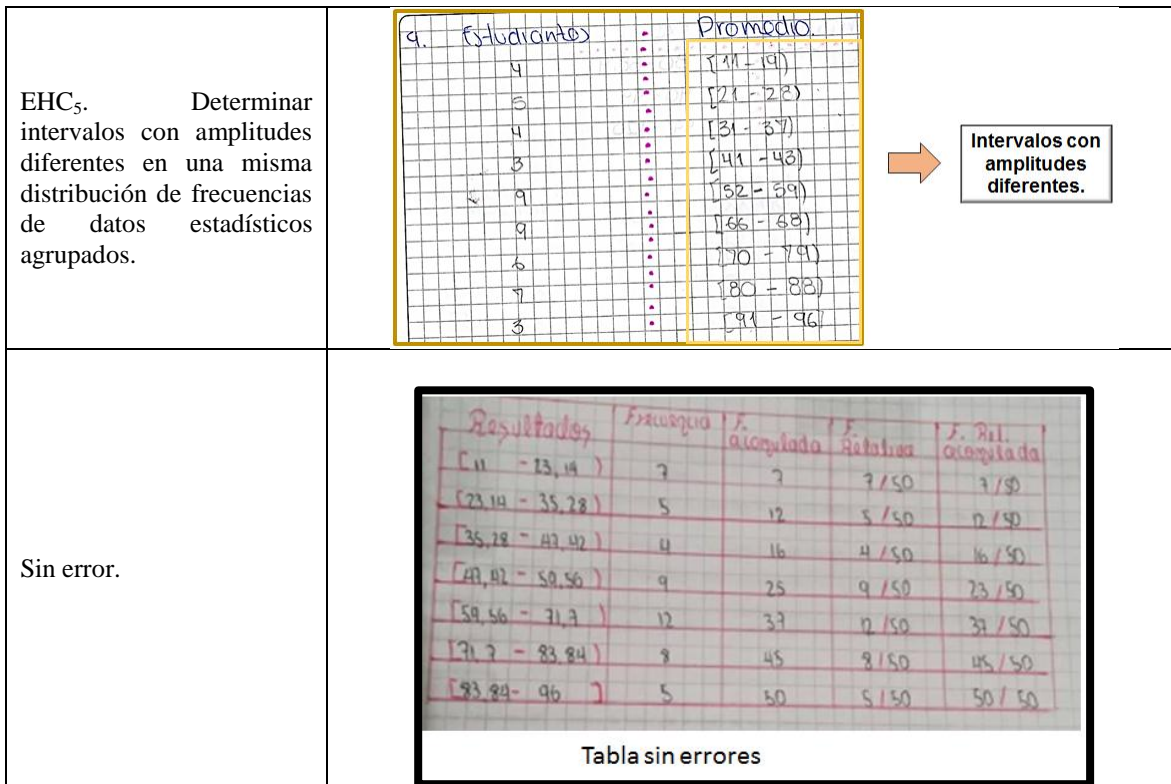 EHC5. Determinar
intervalos con amplitudes
diferentes en una misma
distribución de frecuencias
de datos estadísticos
agrupados.
9. Estudiantes Promedio.
4 [11 - 19)
5 [21 - 28)
4 [31 - 37)
3 [41 - 43)
9 [52 - 59)
9 [66 - 68)
6 [70 - 79)
7 [80 - 88)
3 [91 - 96]
Intervalos con
amplitudes
diferentes.
Sin error.
Resultados Frecuencia F. acomulada F. Relativa F. Rel. acomulada
[11 - 23,14) 7 7 7/50 7/50
[23,14 - 35,28) 5 12 5/50 12/50
[35,28 - 47,42) 4 16 4/50 16/50
[47,42 - 59,56) 9 25 9/50 23/50
[59,56 - 71,7) 12 37 12/50 37/50
[71,7 - 83,84) 8 45 8/50 45/50
[83,84 - 96] 5 50 5/50 50/50
Tabla sin errores